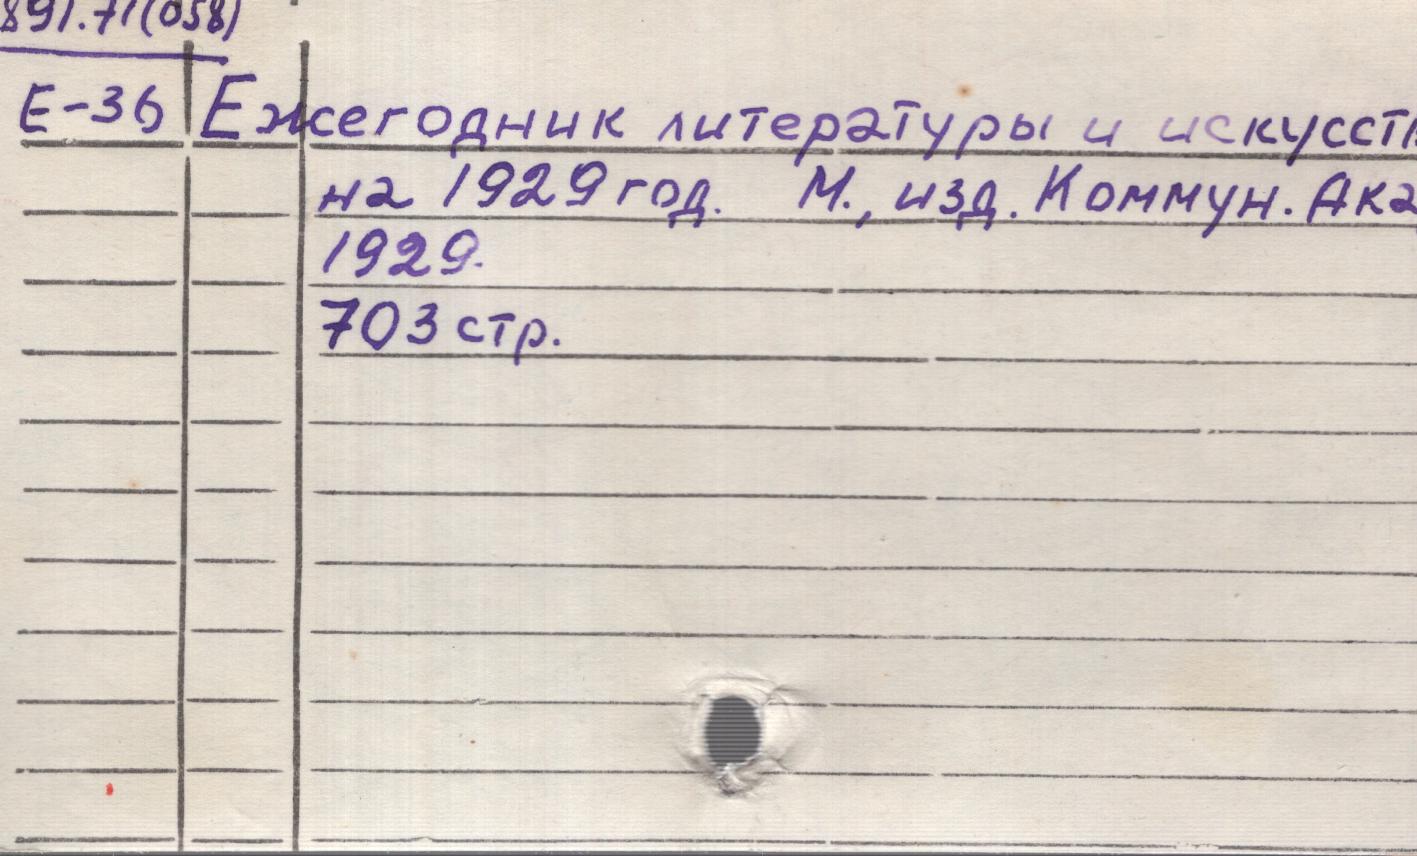 891.71(058)
Е-36 Ежегодник литературы и искусств
на 1929 год. М., изд. Коммун. Ака
1929.
703 стр.